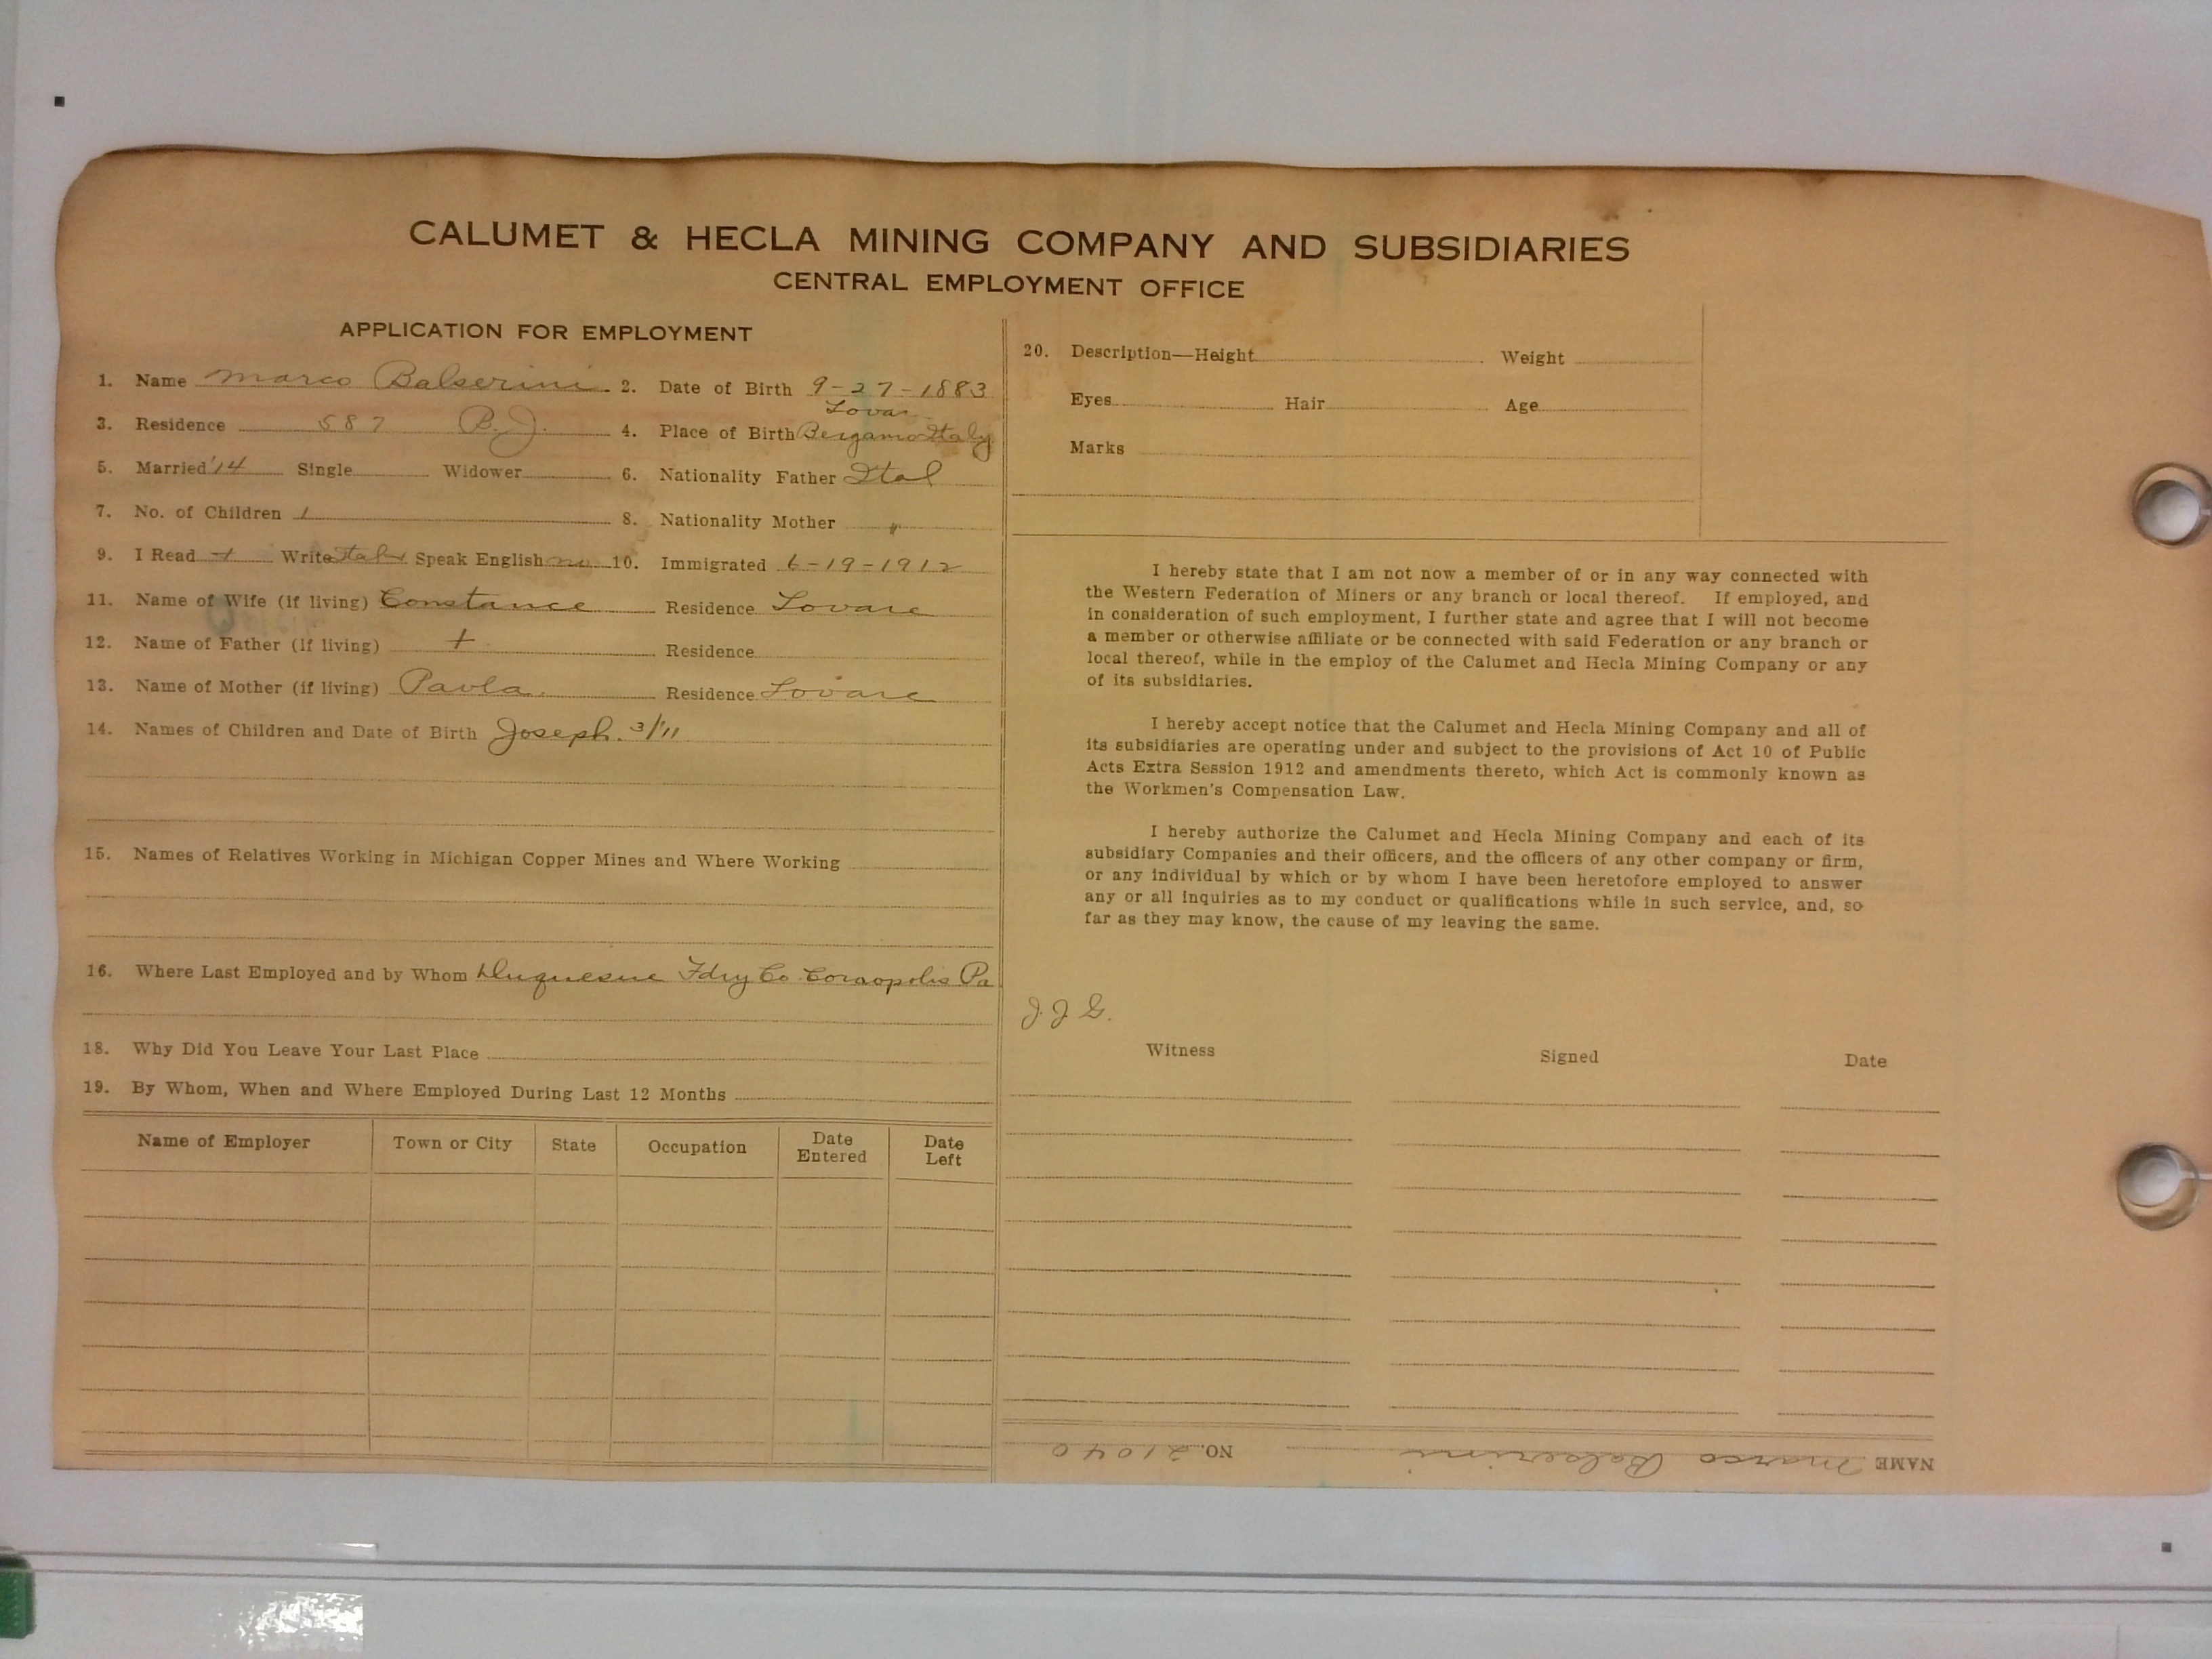 CALUMET & HECLA MINING COMPANY AND SUBSIDIARIES
CENTRAL EMPLOYMENT OFFICE
APPLICATION FOR EMPLOYMENT
1. Name Marco Balserini 2. Date of Birth 9-27-1883
Lovar
3. Residence 587 B.J. 4. Place of Birth Bergamo Italy
5. Married '14 Single Widower 6. Nationality Father Ital
7. No. of Children 1 8. Nationality Mother "
9. I Read + Write Ital Speak English no 10. Immigrated 6-19-1912
11. Name of Wife (if living) Constance Residence Lovare
12. Name of Father (if living) + Residence
13. Name of Mother (if living) Pavla Residence Lovare
14. Names of Children and Date of Birth Joseph. 3/'11
15. Names of Relatives Working in Michigan Copper Mines and Where Working
16. Where Last Employed and by Whom Duquesne Fdry Co Coraopolis Pa
18. Why Did You Leave Your Last Place
19. By Whom, When and Where Employed During Last 12 Months
Name of Employer Town or City State Occupation Date Entered Date Left
20. Description—Height Weight
Eyes Hair Age
Marks
I hereby state that I am not now a member of or in any way connected with
the Western Federation of Miners or any branch or local thereof. If employed, and
in consideration of such employment, I further state and agree that I will not become
a member or otherwise affiliate or be connected with said Federation or any branch or
local thereof, while in the employ of the Calumet and Hecla Mining Company or any
of its subsidiaries.
I hereby accept notice that the Calumet and Hecla Mining Company and all of
its subsidiaries are operating under and subject to the provisions of Act 10 of Public
Acts Extra Session 1912 and amendments thereto, which Act is commonly known as
the Workmen's Compensation Law.
I hereby authorize the Calumet and Hecla Mining Company and each of its
subsidiary Companies and their officers, and the officers of any other company or firm,
or any individual by which or by whom I have been heretofore employed to answer
any or all inquiries as to my conduct or qualifications while in such service, and, so
far as they may know, the cause of my leaving the same.
J.J.G.
Witness Signed Date
NAME Marco Balserini NO. 21040